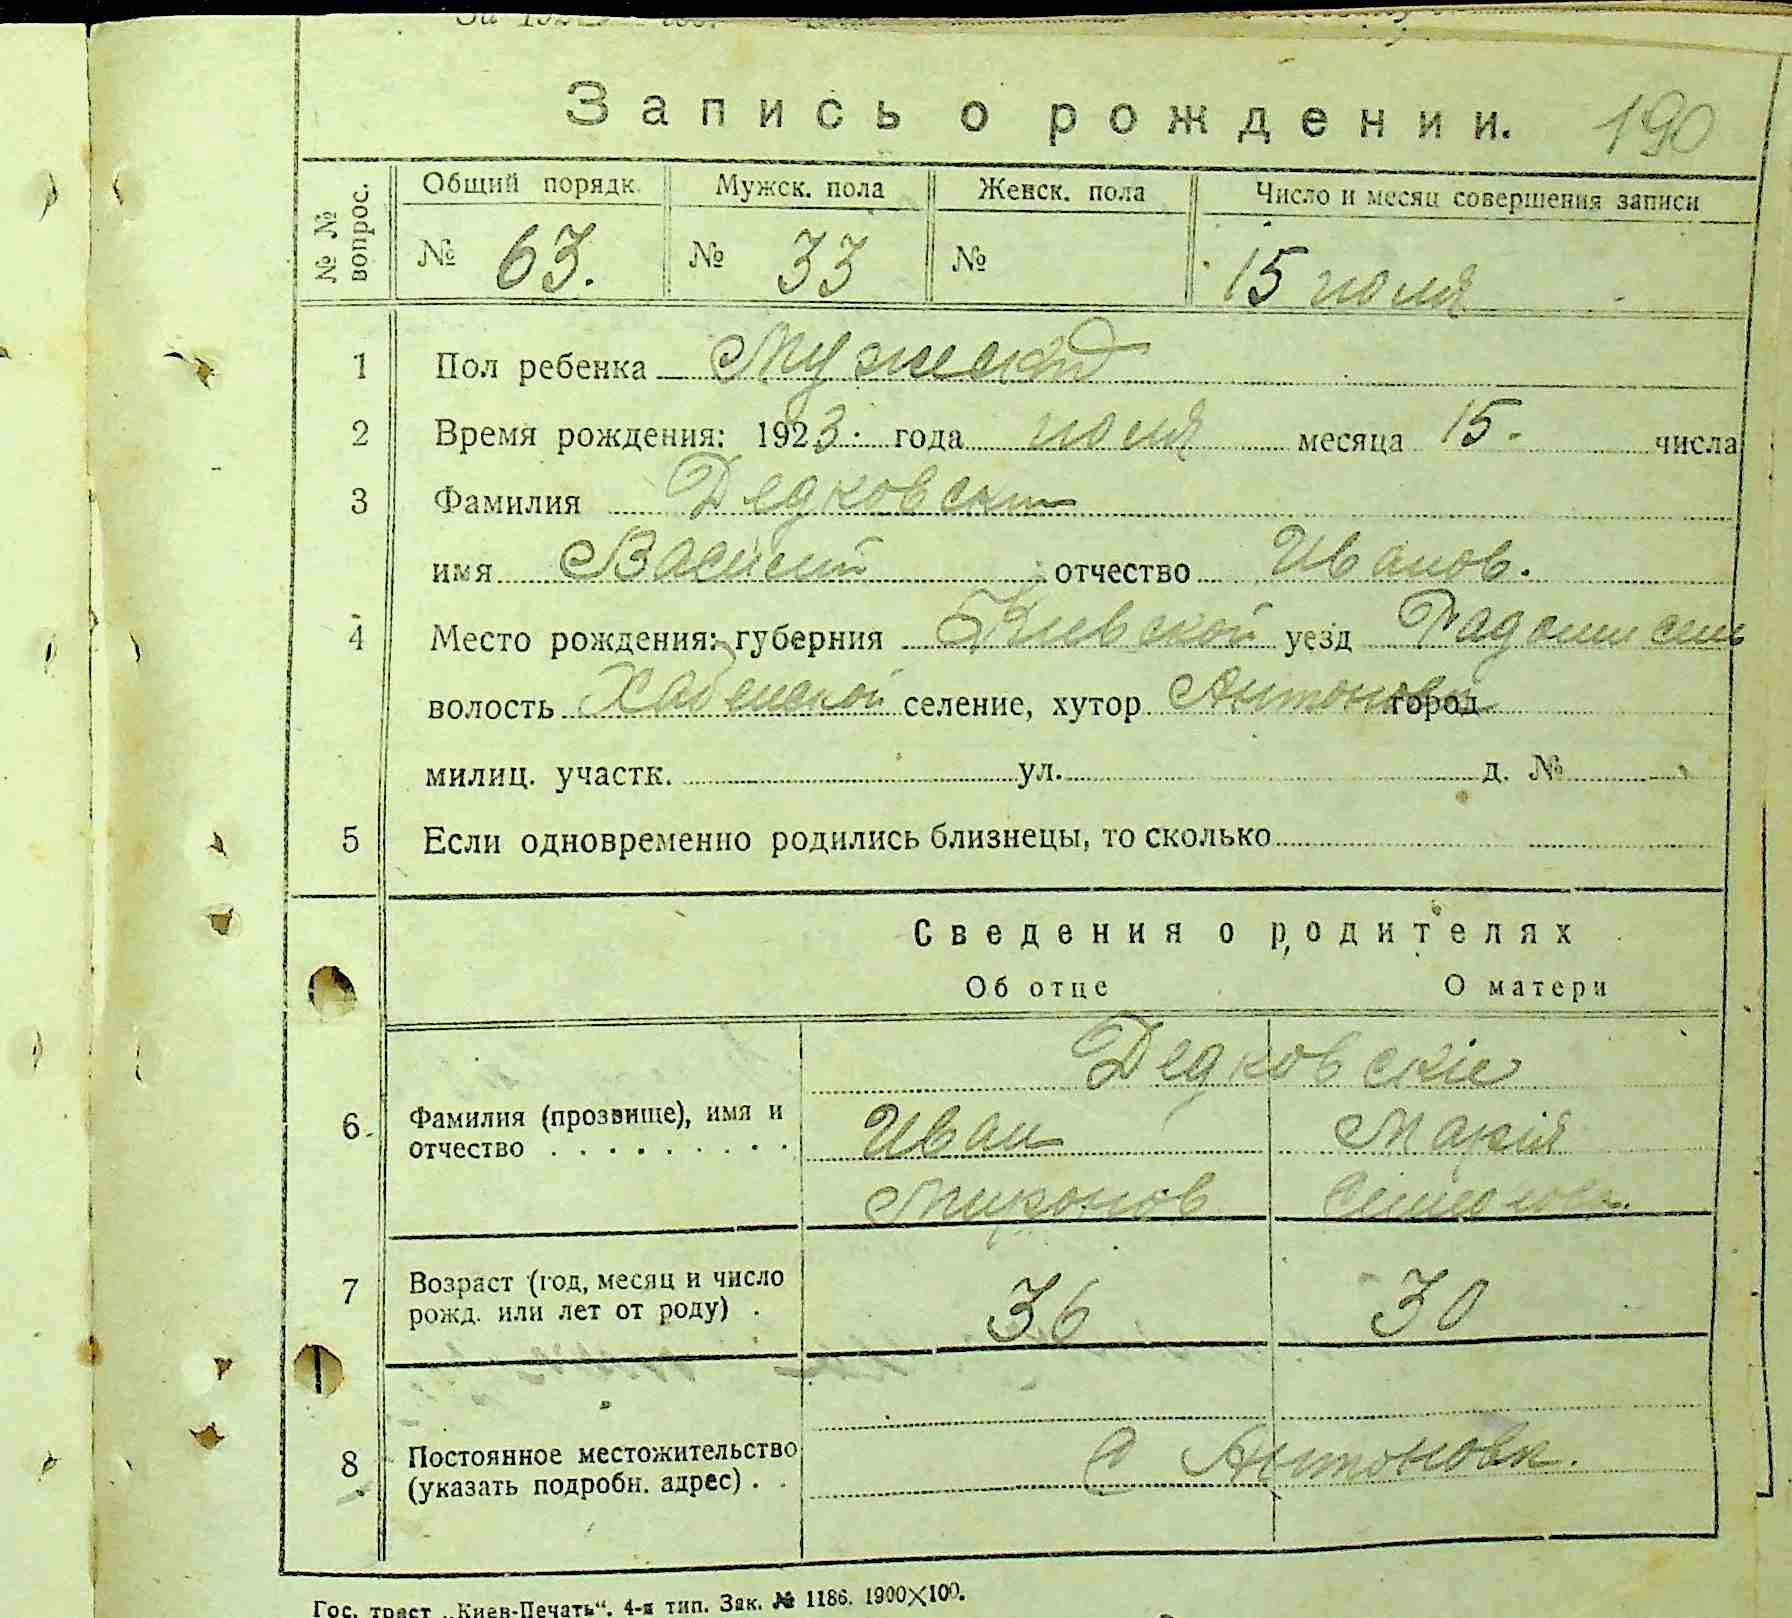 Запись о рождении. 190
№№ вопрос. Общий порядк. Мужск. пола Женск. пола Число и месяц совершения записи
№ 63. № 33 № 15 июля
1 Пол ребенка Мужской
2 Время рождения: 1923. года июля месяца 15. числа
3 Фамилия Дедковский
имя Василий отчество Иванов.
4 Место рождения: губерния Киевской уезд
волость Хабенской селение, хутор Антоновка город
милиц. участк. ул. д. №
5 Если одновременно родились близнецы, то сколько
Сведения о родителях
Об отце О матери
Дедковскіе
6 Фамилия (прозвище), имя и Иван Марія
отчество . . . . . . . . . Миронов Семенов.
7 Возраст (год, месяц и число
рожд. или лет от роду) . 36 30
8 Постоянное местожительство С Антоновк.
(указать подробн. адрес) . .
Гос. трест „Киев-Печать“. 4-я тип. Зак. № 1186. 1900×100.